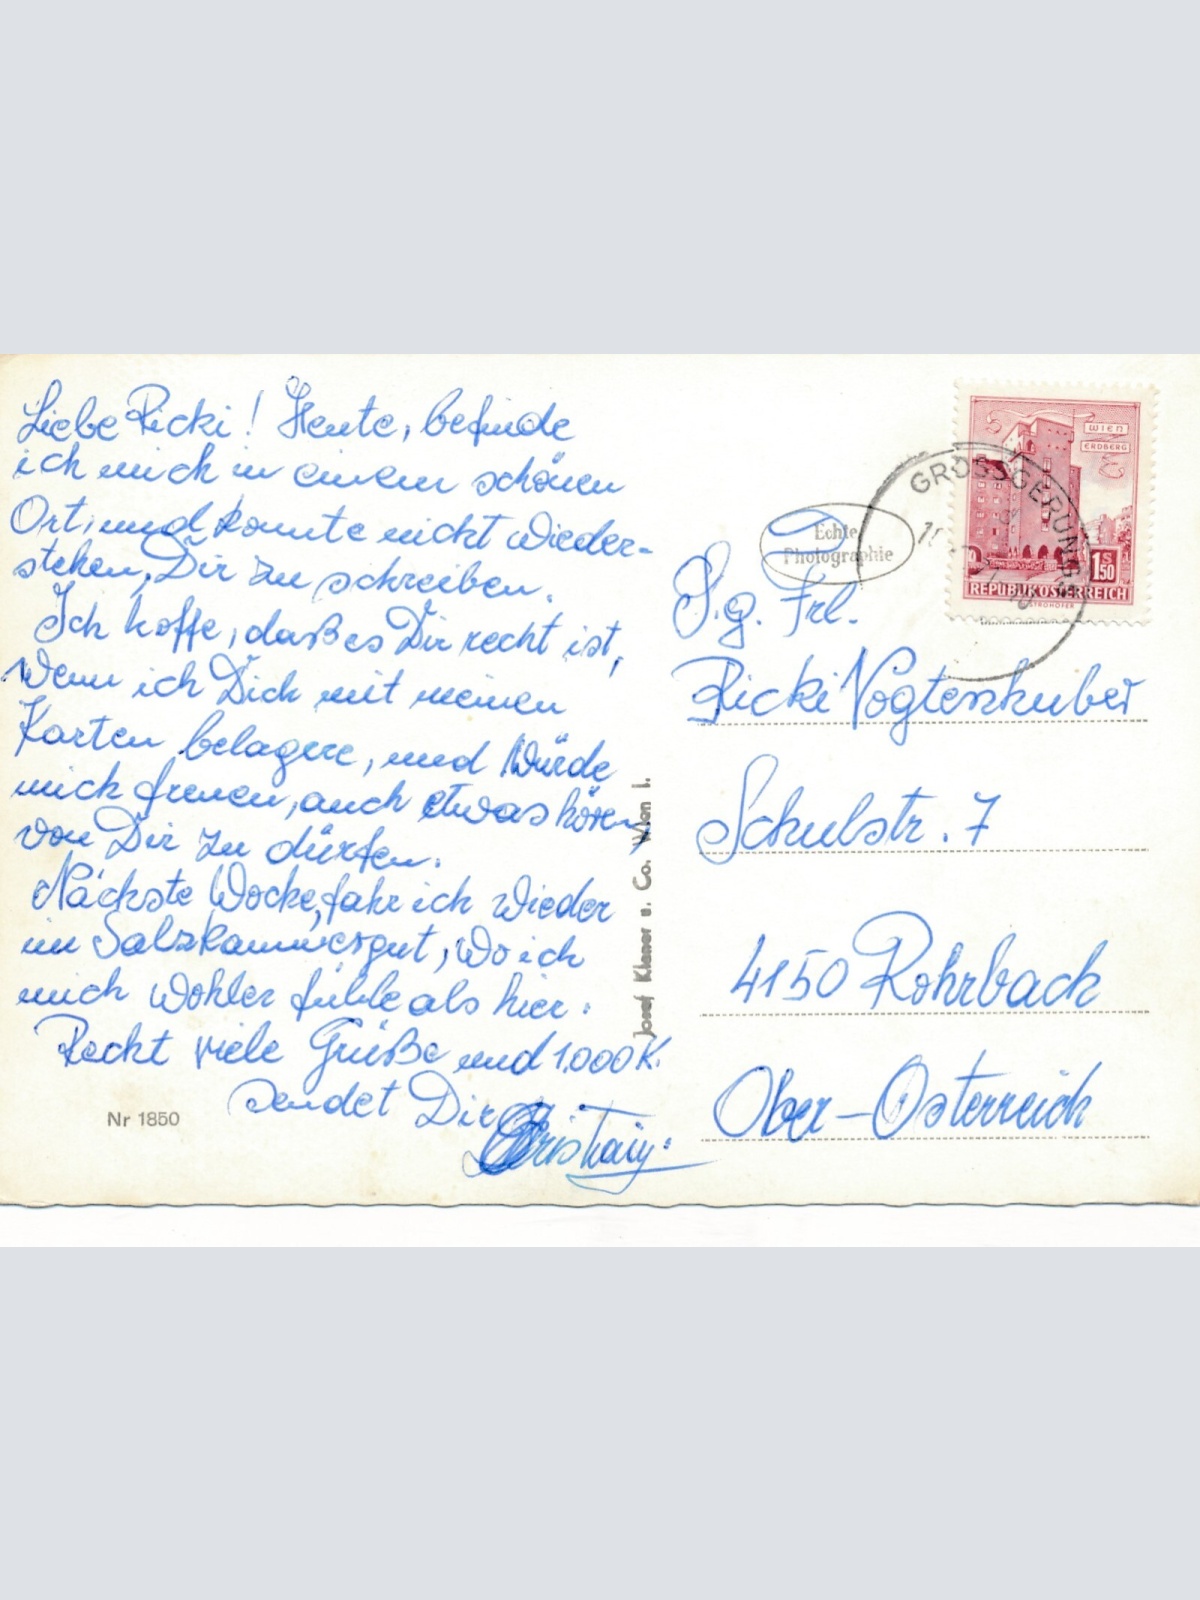 Liebe Ricki! Heute, befinde
ich mich in einem schönen
Ort, und konnte nicht wieder-
stehen, Dir zu schreiben.
Ich hoffe, daß es Dir recht ist,
Wenn ich Dich mit meinen
Karten belagere, und Würde
mich freuen, auch etwas hören,
von Dir zu dürfen.
Nächste Woche, fahr ich wieder
im Salzkammergut, wo ich
mich wohler fühle als hier.
Recht viele Grüße und 1.000 K.
sendet Dir
Nr 1850
Josef Klaner u. Co. Wien I.
Echte
Photographie
GROSSGERUNGS
WIEN
ERDBERG
1 S 50
REPUBLIK ÖSTERREICH
S.g. Frl.
Ricki Vogtenhuber
Schulstr. 7
4150 Rohrbach
Ober-Österreich